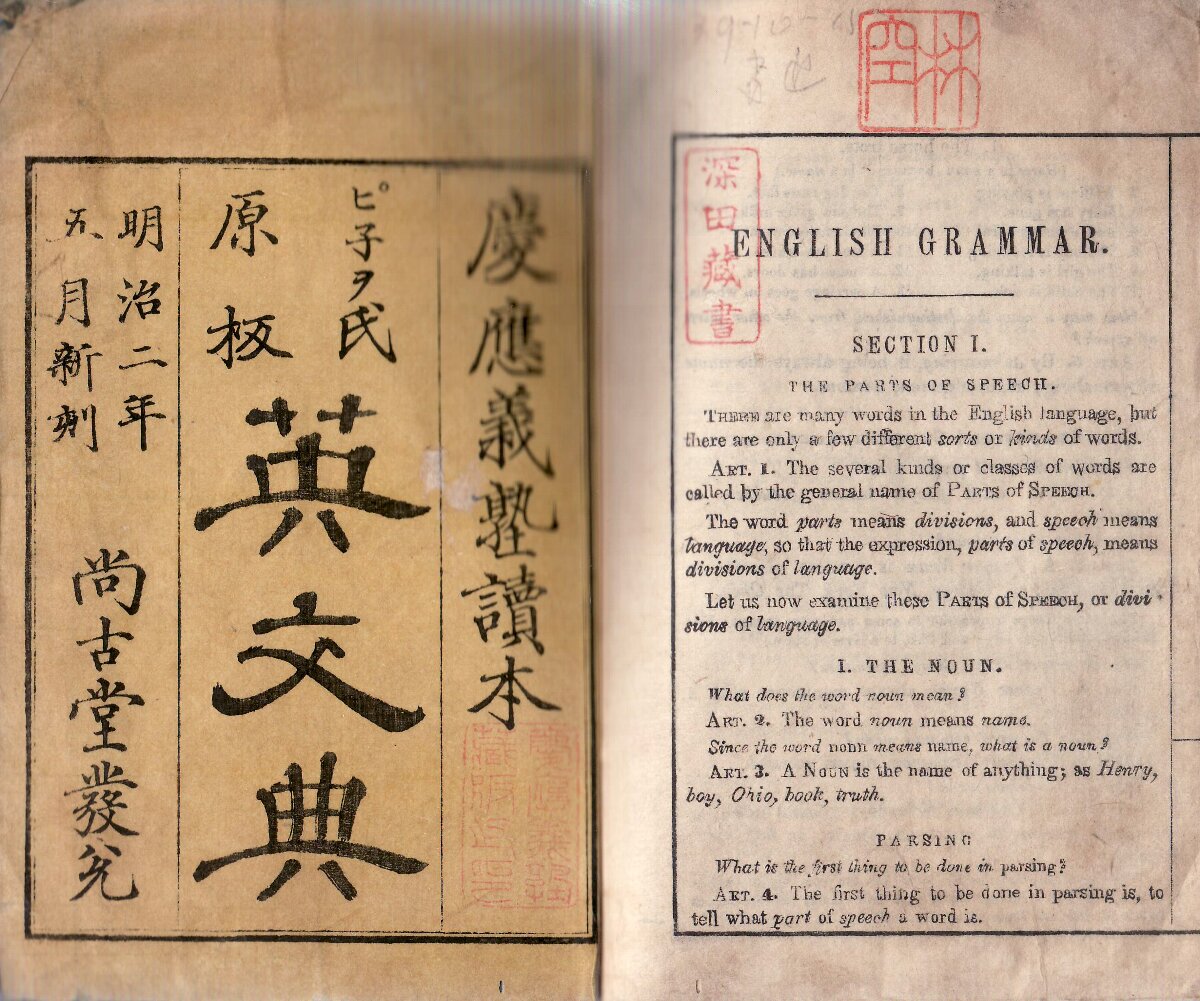 慶應義塾讀本
ピ子ヲ氏
原板
英文典
明治二年
五月新刻
尚古堂發兌
深田藏書
ENGLISH GRAMMAR.
SECTION I.
THE PARTS OF SPEECH.
THERE are many words in the English language, but
there are only a few different sorts or kinds of words.
ART. 1. The several kinds or classes of words are
called by the general name of PARTS of SPEECH.
The word parts means divisions, and speech means
language, so that the expression, parts of speech, means
divisions of language.
Let us now examine these PARTS of SPEECH, or divi
sions of language.
I. THE NOUN.
What does the word noun mean?
ART. 2. The word noun means name.
Since the word noun means name, what is a noun?
ART. 3. A NOUN is the name of anything; as Henry,
boy, Ohio, book, truth.
PARSING
What is the first thing to be done in parsing?
ART. 4. The first thing to be done in parsing is, to
tell what part of speech a word is.